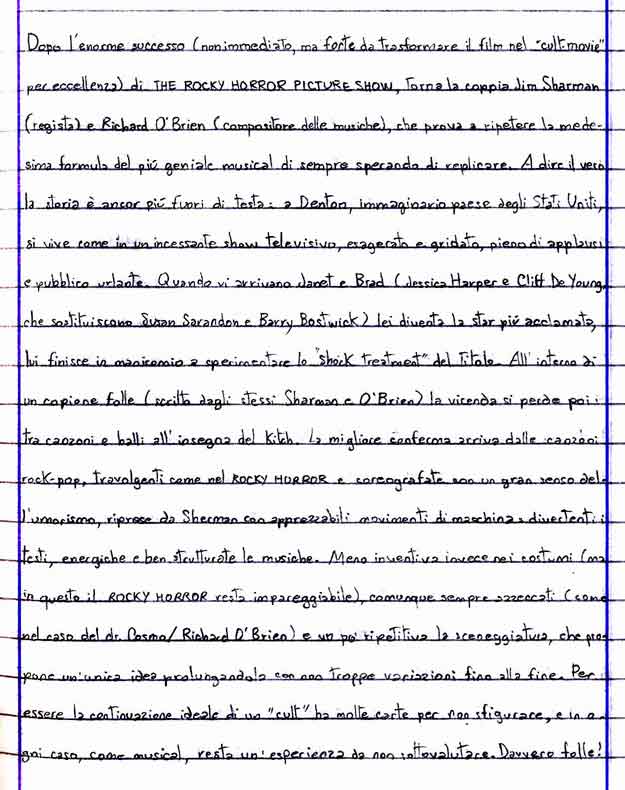 Dopo l'enorme successo (non immediato, ma forte da trasformare il film nel "cult-movie"
per eccellenza) di THE ROCKY HORROR PICTURE SHOW, torna la coppia Jim Sharman
(regista) e Richard O'Brien (compositore delle musiche), che prova a ripetere la mede-
sima formula del piú geniale musical di sempre sperando di replicare. A dire il vero
la storia è ancor piú fuori di testa: a Denton, immaginario paese degli Stati Uniti,
si vive come in un incessante show televisivo, esagerato e gridato, pieno di applausi
e pubblico urlante. Quando vi arrivano Janet e Brad (Jessica Harper e Cliff De Young,
che sostituiscono Susan Sarandon e Barry Bostwick) lei diventa la star piú acclamata,
lui finisce in manicomio a sperimentare lo "shock treatment" del titolo. All'interno di
un copione folle (scritto dagli stessi Sharman e O'Brien) la vicenda si perde poi
tra canzoni e balli all'insegna del Kitch. La migliore conferma arriva dalle canzoni
rock-pop, travolgenti come nel ROCKY HORROR e coreografate con un gran senso del-
l'umorismo, riprese da Sherman con apprezzabili movimenti di macchina: divertenti i
testi, energiche e ben strutturate le musiche. Meno inventiva invece nei costumi (ma
in questo il ROCKY HORROR resta impareggiabile), comunque sempre azzeccati (come
nel caso del dr. Cosmo/Richard O'Brien) e un po' ripetitiva la sceneggiatura, che pro-
pone un'unica idea prolungandola con non troppe variazioni fino alla fine. Per
essere la continuazione ideale di un "cult" ha molte carte per non sfigurare, e in o-
gni caso, come musical, resta un'esperienza da non sottovalutare. Davvero folle!